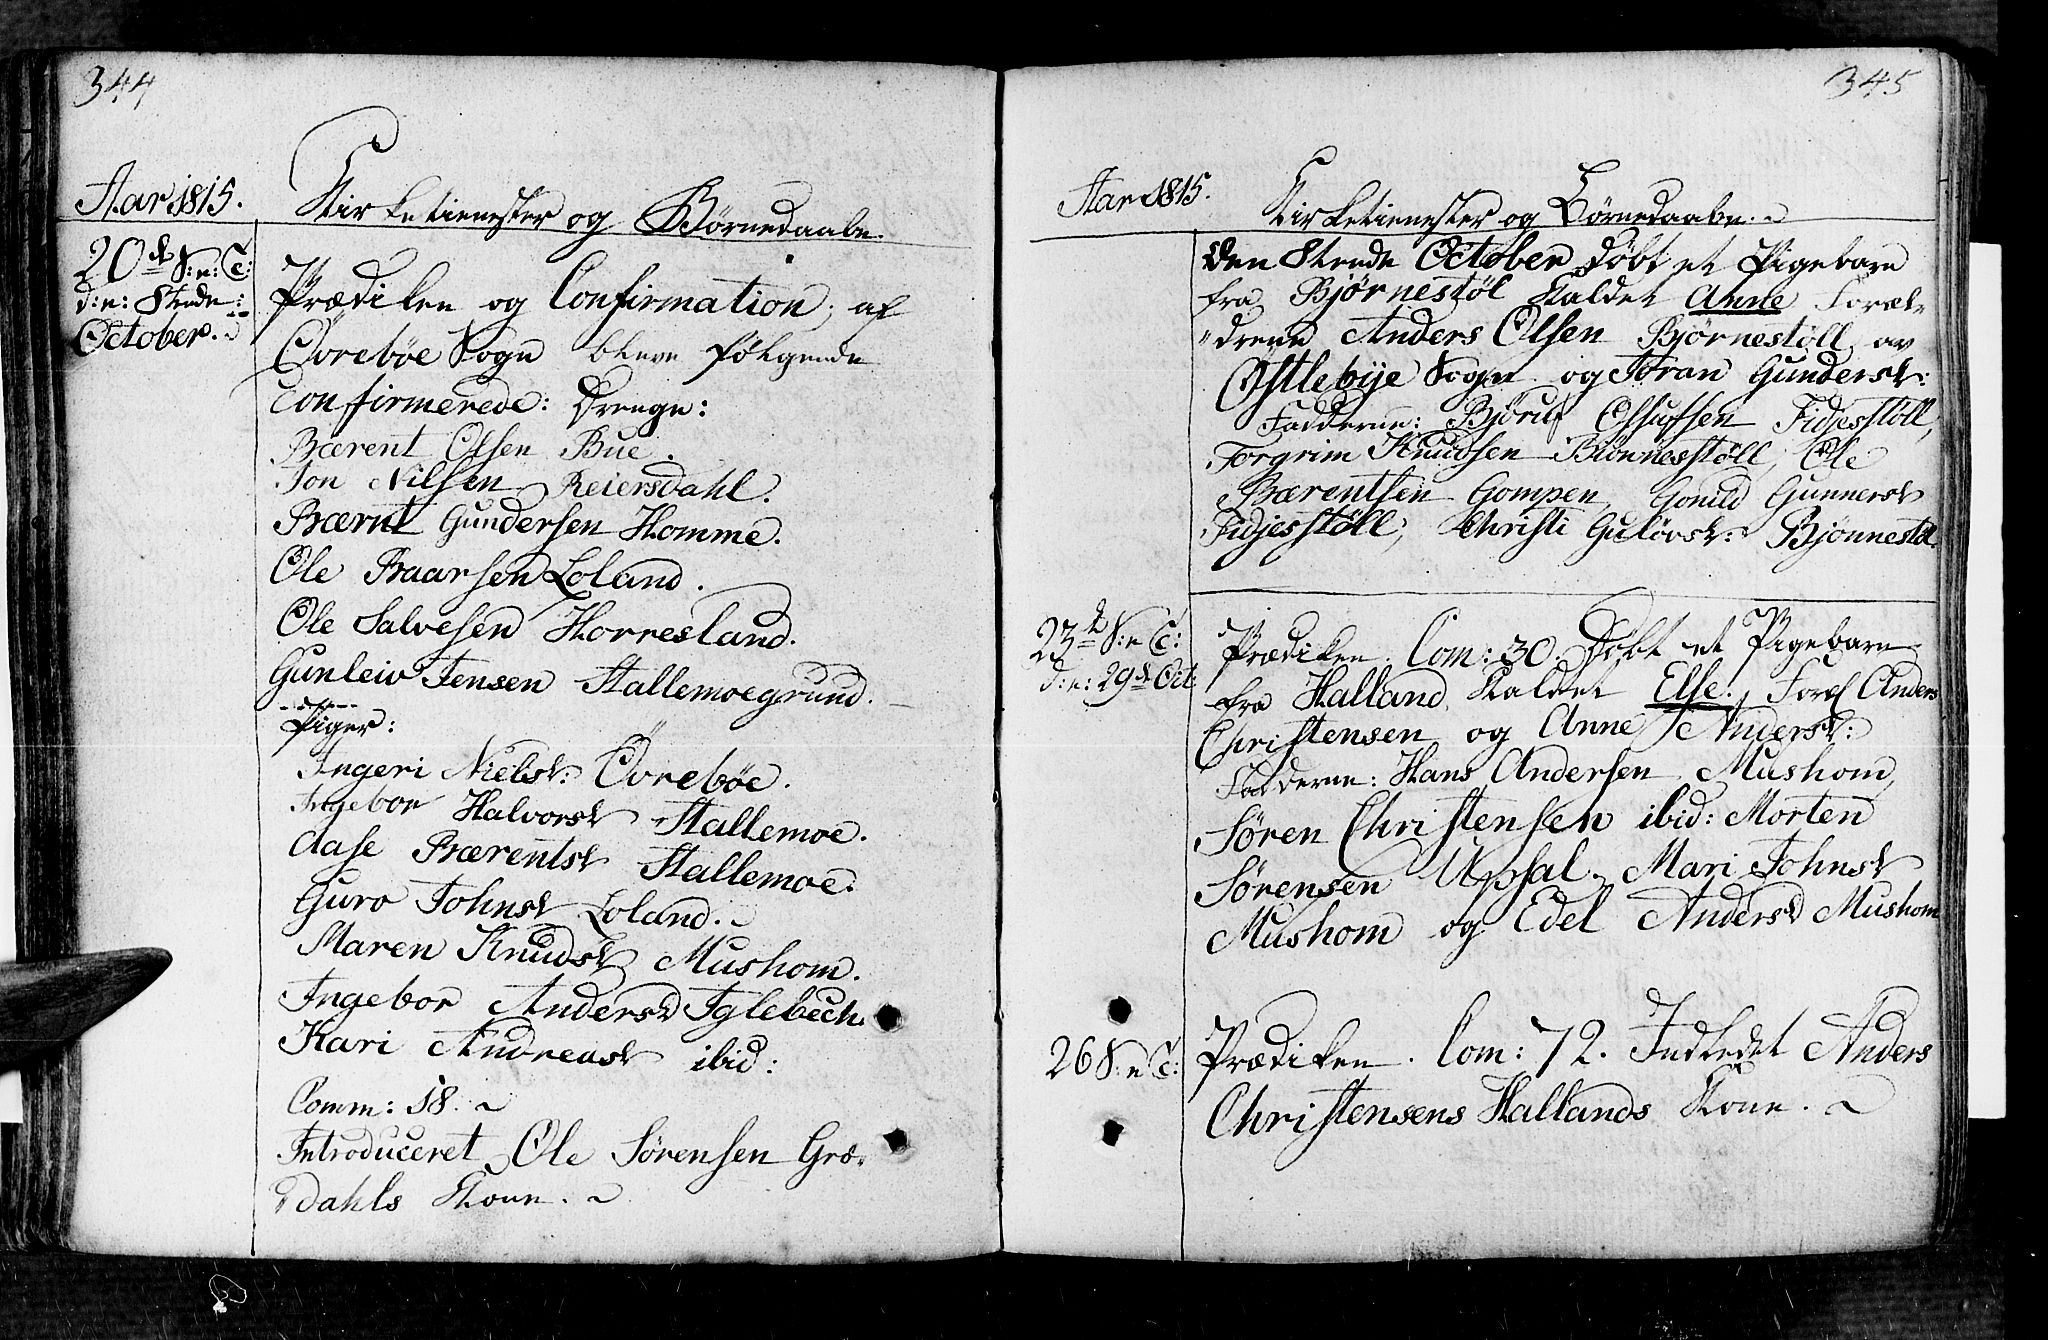 344
Aar 1815.
Kirketienester og Børnedaabe.
20de S: e: T:
d: e: 8tende
October.
Prædiken og Confirmation; af
Øvrebøe Sogn bleve følgende
Confirmerede: Drenge:
Bærent Olsen Bue.
Jon Nilsen Reiersdahl.
Bærnt Gundersen Homme.
Ole Baarsen Loland.
Ole Salvesen Horresland.
Gunleiv Jensen Stallemoegrund.
Piger:
Ingeri Nielsd: Øvrebøe.
Ingebor Halvorsd Stallemoe.
Aase Bærentsd Stallemoe.
Guro Johnsd Loland.
Maren Knudsd Mushom.
Ingebor Andersd Iglebech.
Kari Andreasd ibid:
Comm: 18.
Introduceret Ole Sørensen Græ-
dahls Kone.
345
Aar 1815.
Kirketienester og Børnedaabe.
Den 8tende October døbt et Pigebarn
fra Bjørnestøl kaldet Anne Foræl-
"drene Anders Olsen Bjørnestøll av
Østlebye Sogn og Joran Gundersd:
Fadderne: Bjørn Ossufsen Fidjestøll,
Torgrim Knudsen Biönnesstøll, Ole
Bærentsen Gompen, Gonild Gunnersd
Fidjesstøll, Christi Guløvsd: Bjönnestøl.
23de S: e T:
d: e: 29de Oct:
Prædiken. Com: 30. Døbt et Pigebarn
fra Halland kaldet Else. Foræl Anders
Christensen og Anne Andersd:
Fadderne: Hans Andersen Mushom,
Søren Christensen ibid: Morten
Sørensen Upsal. Mari Johnsd
Mushom og Edel Andersd Mushom
26 S: e T:
Prædiken. Com: 72. Indledet Anders
Christensens Hallands Kone.